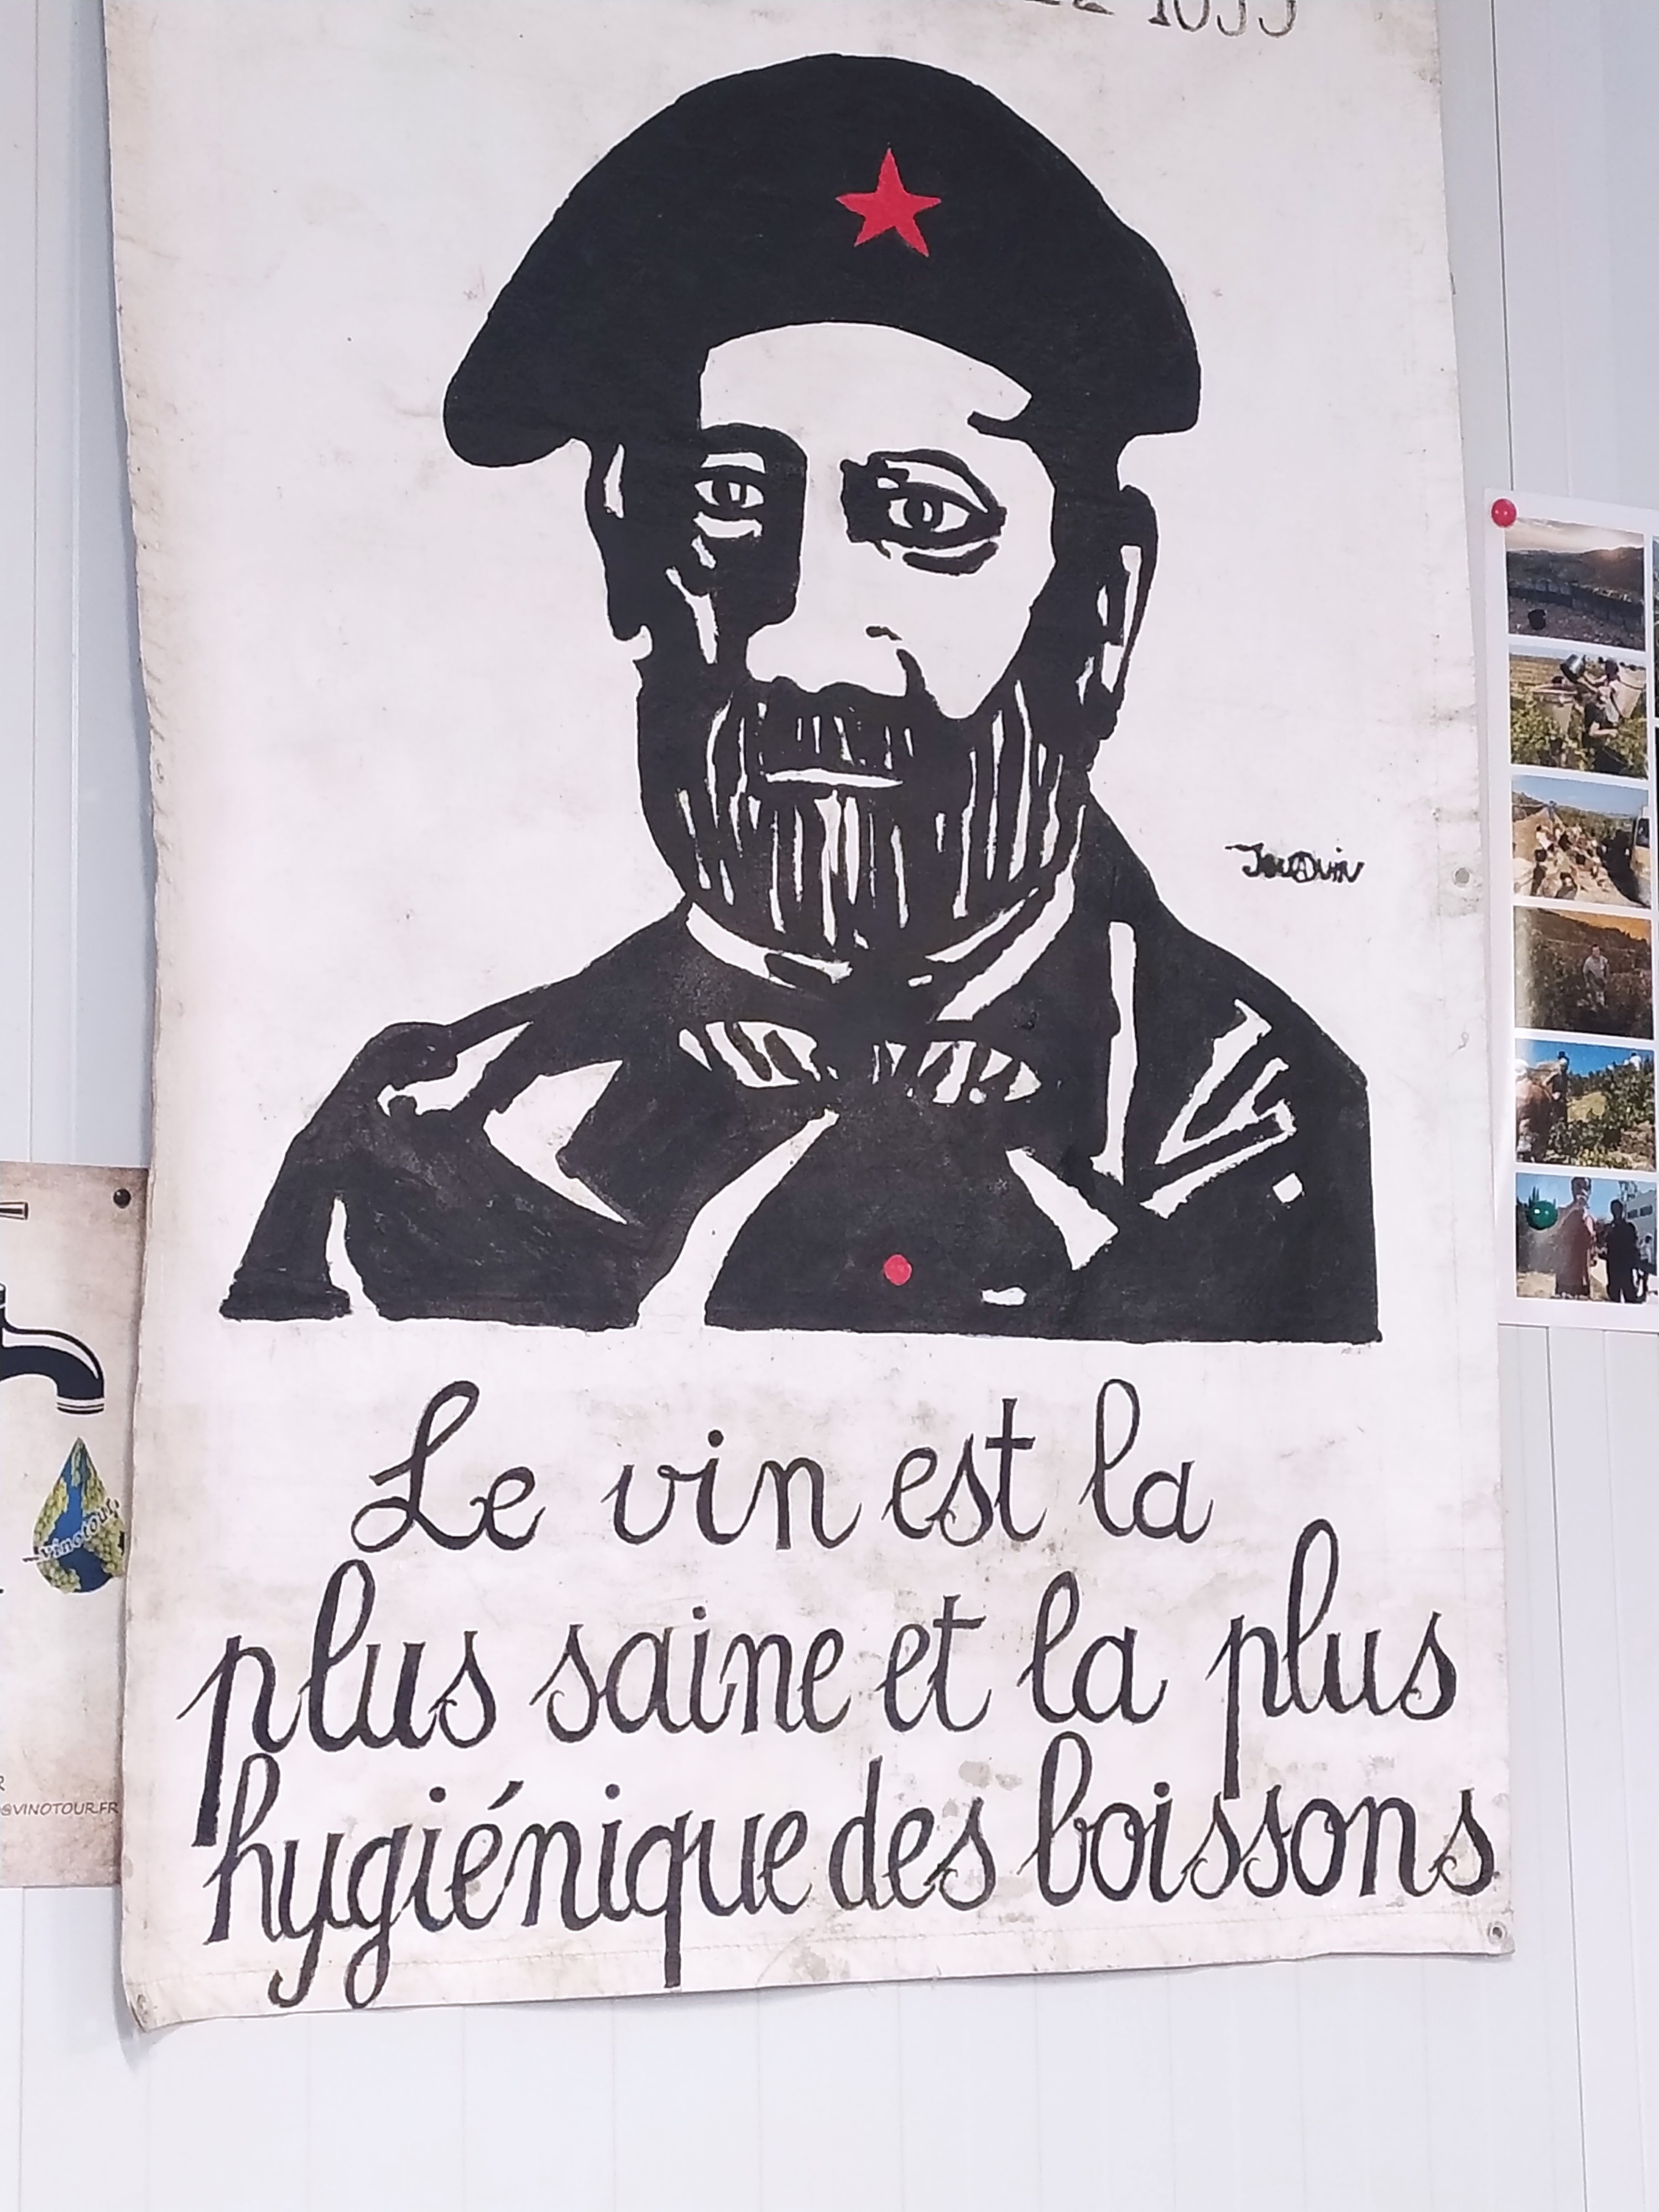 Jouquin
Le vin est la
plus saine et la plus
hygiénique des boissons
vinotour
@VINOTOUR.FR